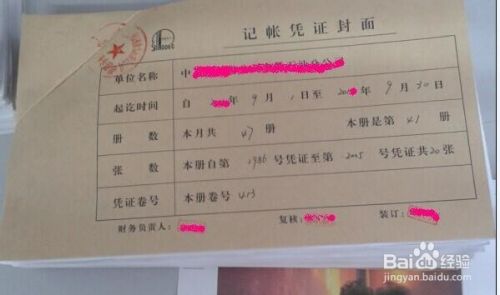 记帐凭证封面
Sinopec
单位名称 中
起讫时间 自 年 9 月 1 日至 201 年 9 月 30 日
册数 本月共 47 册 本册是第 41 册
张数 本册自第 1986 号凭证至第 2005 号凭证共 20 张
凭证卷号 本册卷号 413
财务负责人: 复核: 装订:
Baidu 经验
jingyan.baidu.com